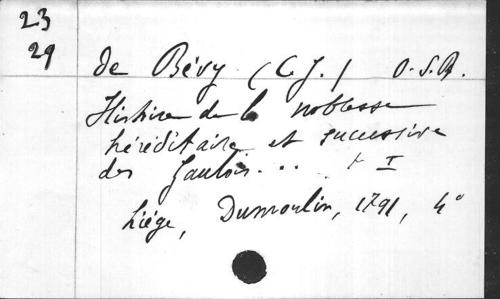 23
29
de Bévy (C. J.) O.S.B.
Histoire de la noblesse
héréditaire et successive
des Gaulois... t I
Liége, Dumoulin, 1791, 4°